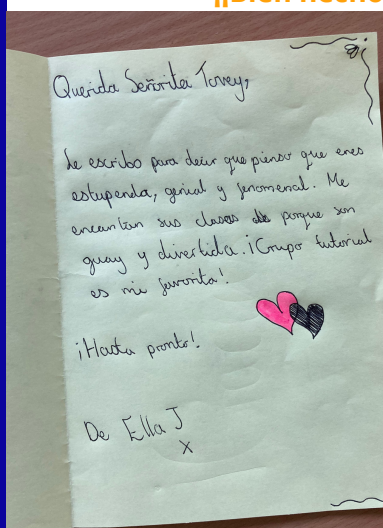 ¡¡Bien hecho
Querida Señorita Tovey,
Le escribo para decir que pienso que eres
estupenda, genial y fenomenal. Me
encantan sus clases de porque son
guay y divertida. ¡Grupo tutorial
es mi favorita!
¡Hasta pronto!.
De Ella J
x